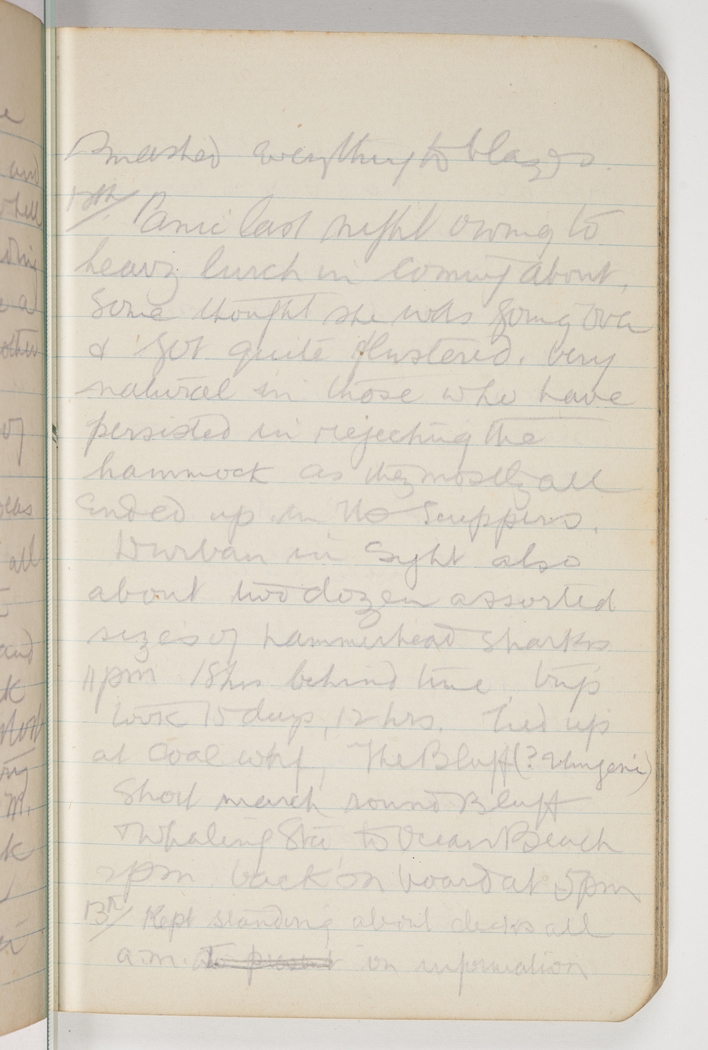 smashed everything to blazes.
12th/ Panic last night owing to
heavy lurch in coming about,
Some thought she was going over
& got quite flustered. Very
natural in those who have
persisted in rejecting the
hammock as they mostly all
ended up in the scuppers.
Durban in sight also
about two dozen assorted
sizes of hammerhead sharks
pm 18 hrs behind time, trip
took 15 days, 12 hrs. Tied up
at Coal whf, The Bluff (?
Short march round Bluff
& Whaling Stn to Ocean Beach
2pm. back on board at 5pm
13th/ Kept standing about decks all
a.m. on information